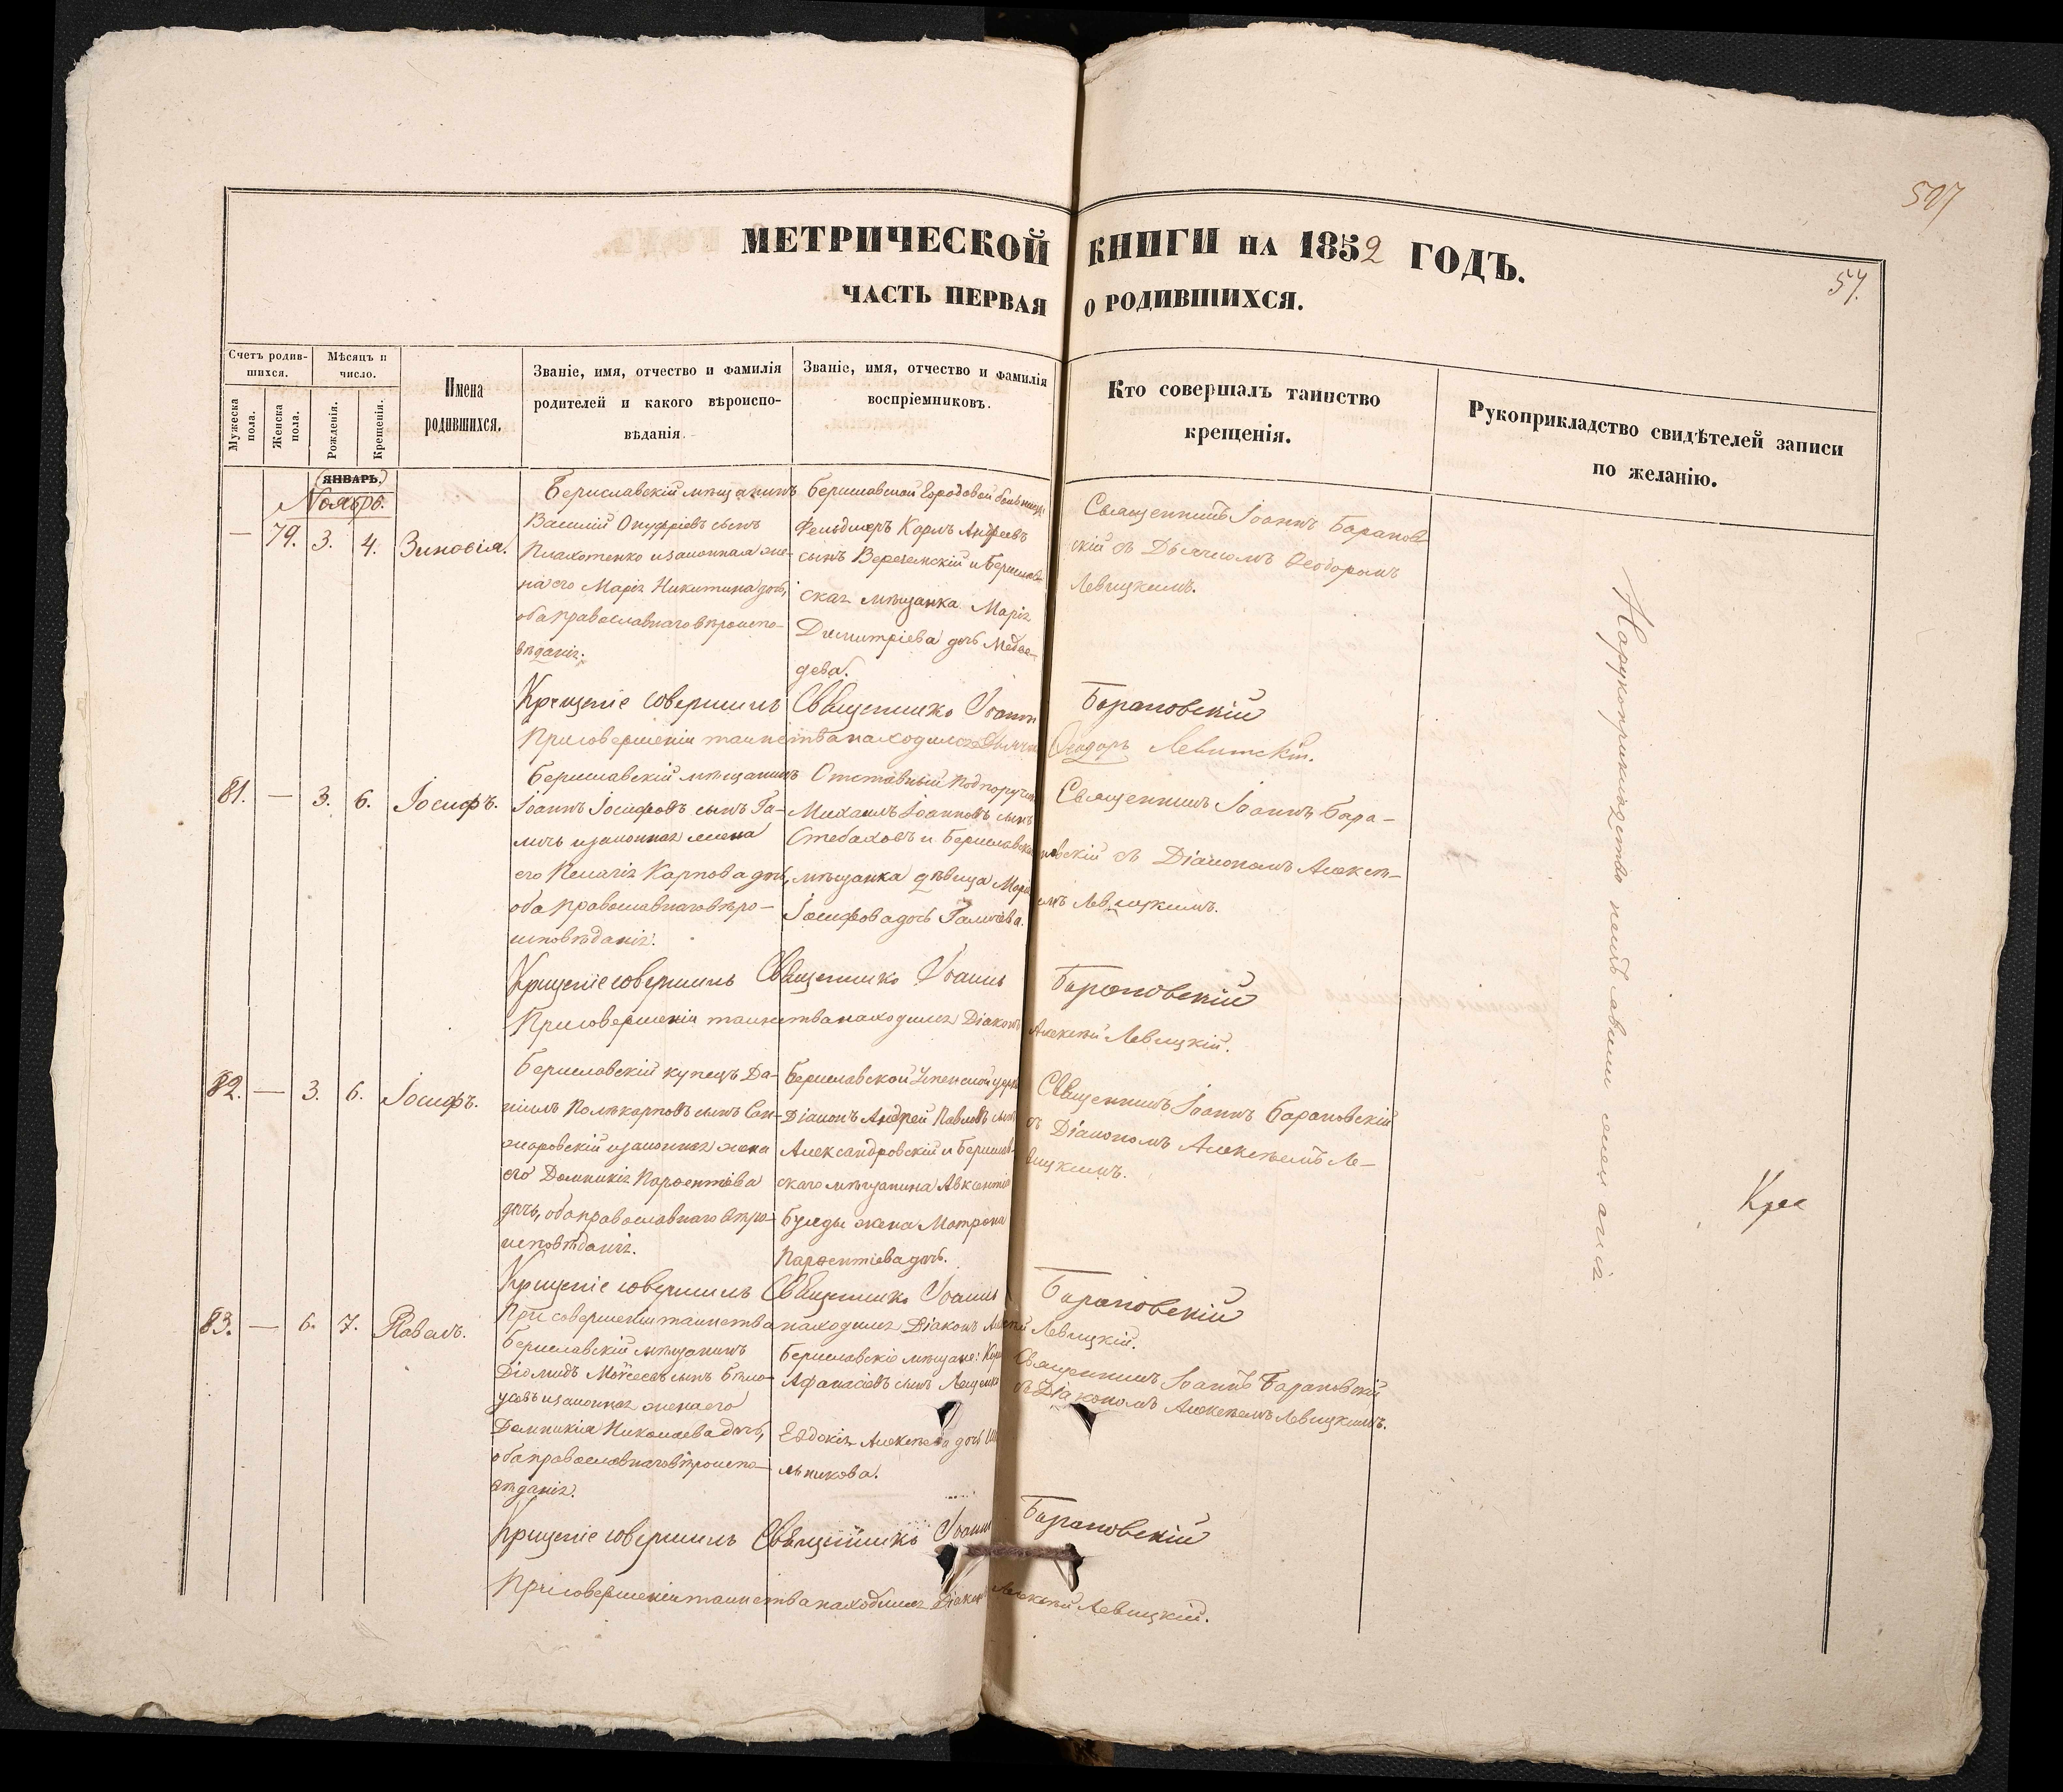 507
МЕТРИЧЕСКОЙ КНИГИ НА 1852 ГОДЪ.
57.
ЧАСТЬ ПЕРВАЯ О РОДИВШИХСЯ.
Счетъ родив-
шихся.
Мужеска
пола.
Женска
пола.
Мѣсяцъ и
число.
Рожденія.
Крещенія.
Имена
родившихся.
Званіе, имя, отчество и фамилія
родителей и какого вѣроиспо-
вѣданія
Званіе, имя, отчество и фамилія
воспріемниковъ.
Кто совершалъ таинство
крещенія.
Рукоприкладство свидѣтелей записи
по желанію.
ЯНВАРЬ.
Ноябрь.
— 79. 3. 4. Зиновія.
Бериславскій мѣщанинъ
Василій Онуфріевъ сынъ
Плахотенко и законная же-
на его Марія Никитина дочь,
оба православнаго вѣроиспо-
вѣданія.
Бериславской Городовой больницы
Фельдшеръ Карлъ Андреевъ
сынъ и Берислав-
ская мѣщанка Марія
Димитріева дочь Медве-
дева.
Священникъ Іоаннъ Баранов
скій съ Дьячкомъ Ѳеодоромъ
Левицкимъ.
Крещеніе совершилъ Священникъ Іоаннъ Барановскій
При совершеніи таинства находился Дьячекъ Ѳеодоръ Левитскій.
81. — 3. 6. Іосифъ.
Бериславскій мѣщанинъ
Іоаннъ Іосифовъ сынъ Га-
личь и законная жена
его Пелагія Карпова дочь,
оба православнаго вѣро-
исповѣданія.
Отставный Подпоручикъ
Михаилъ Іоанновъ сынъ
Стебаховъ и Бериславская
мѣщанка дѣвица Марія
Іосифова дочь Галичева.
Священникъ Іоаннъ Бара-
новскій съ Діакономъ Алексѣ-
емъ Левицкимъ.
Крещеніе совершилъ Священникъ Іоаннъ Барановскій
При совершеніи таинства находился Діаконъ Алексѣй Левицкій.
82. — 3. 6. Іосифъ.
Бериславскій купецъ Да-
ніилъ Поликарповъ сынъ Сан-
жаровскій и законная жена
его Домникія Парѳентіева
дочь, оба православнаго вѣро-
исповѣданія.
Бериславской Успенской церкви
Діаконъ Андрей Павловъ сынъ
Александровскій и Берислав-
скаго мѣщанина Авксентія
жена Матрона
Парѳентіева дочь.
Священникъ Іоаннъ Барановскій
съ Діакономъ Алексѣемъ Ле-
вицкимъ.
Крещеніе совершилъ Священникъ Іоаннъ Барановскій
При совершеніи таинства находился Діаконъ Алексѣй Левицкій.
83. — 6. 7. Павелъ.
Бериславскій мѣщанинъ
Діомидъ Моѵсеевъ сынъ Бѣло-
усовъ и законная жена его
Домникія Николаева дочь,
оба православнаго вѣроиспо-
вѣданія.
Бериславскіе мѣщане:
Афанасіевъ сынъ Лещенко
Евдокія Алексѣева дочь
льникова.
Священникъ Іоаннъ Барановскій
съ Діакономъ Алексѣемъ Левицкимъ.
Крещеніе совершилъ Священникъ Іоаннъ Барановскій
При совершеніи таинства находился Діаконъ Алексѣй Левицкій.
На рукоприкладство